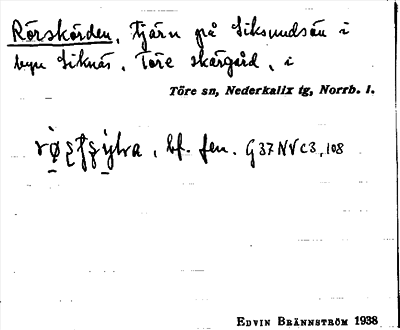 Rörskörden, tjärn på Siksundsön i
byn Siknäs, Töre skärgård, i
Töre sn, Nederkalix tg, Norrb. l.
bf. fen. G37NVC3,108
EDVIN BRÄNNSTRÖM 1938